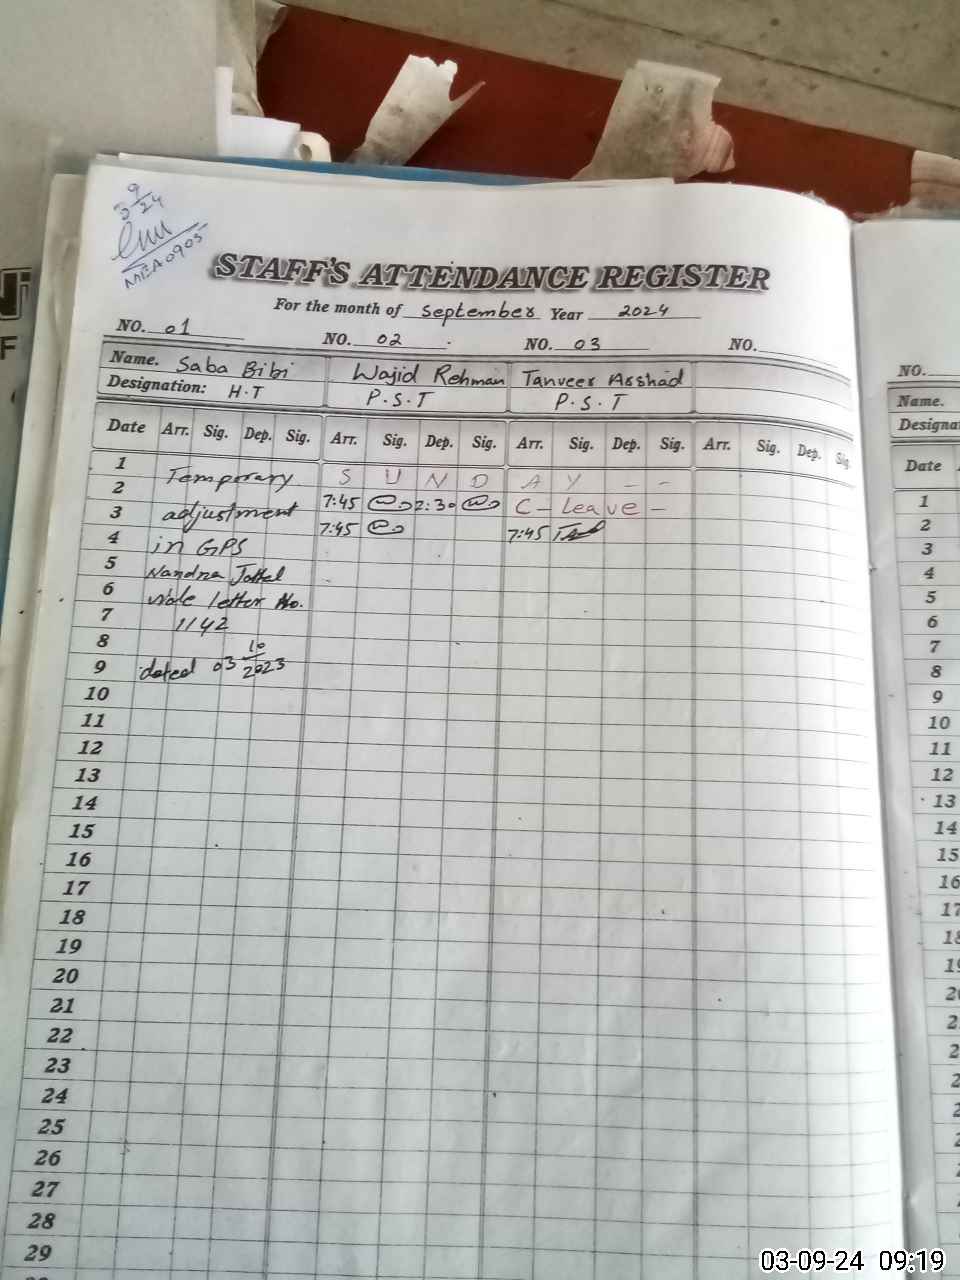 3 9/24
MEA0905
STAFF'S ATTENDANCE REGISTER
For the month of September Year 2024
NO. 01 NO. 02 NO. 03 NO.
Name. Saba Bibi Wajid Rehman Tanveer Arshad
Designation: H.T P.S.T P.S.T
Date Arr. Sig. Dep. Sig. Arr. Sig. Dep. Sig. Arr. Sig. Dep. Sig. Arr. Sig. Dep. Sig.
1 Temporary S U N D A Y - -
2 7:45 2:30 C - Leave -
3 adjustment 7:45 7:45
4 in GPS
5 Nandna
6 vide letter No.
7 1142
8
9 dated 03 10/2023
10
11
12
13
14
15
16
17
18
19
20
21
22
23
24
25
26
27
28
29
NO.
Name.
Date
1
2
3
4
5
6
7
8
9
10
11
12
13
14
15
16
03-09-24 09:19